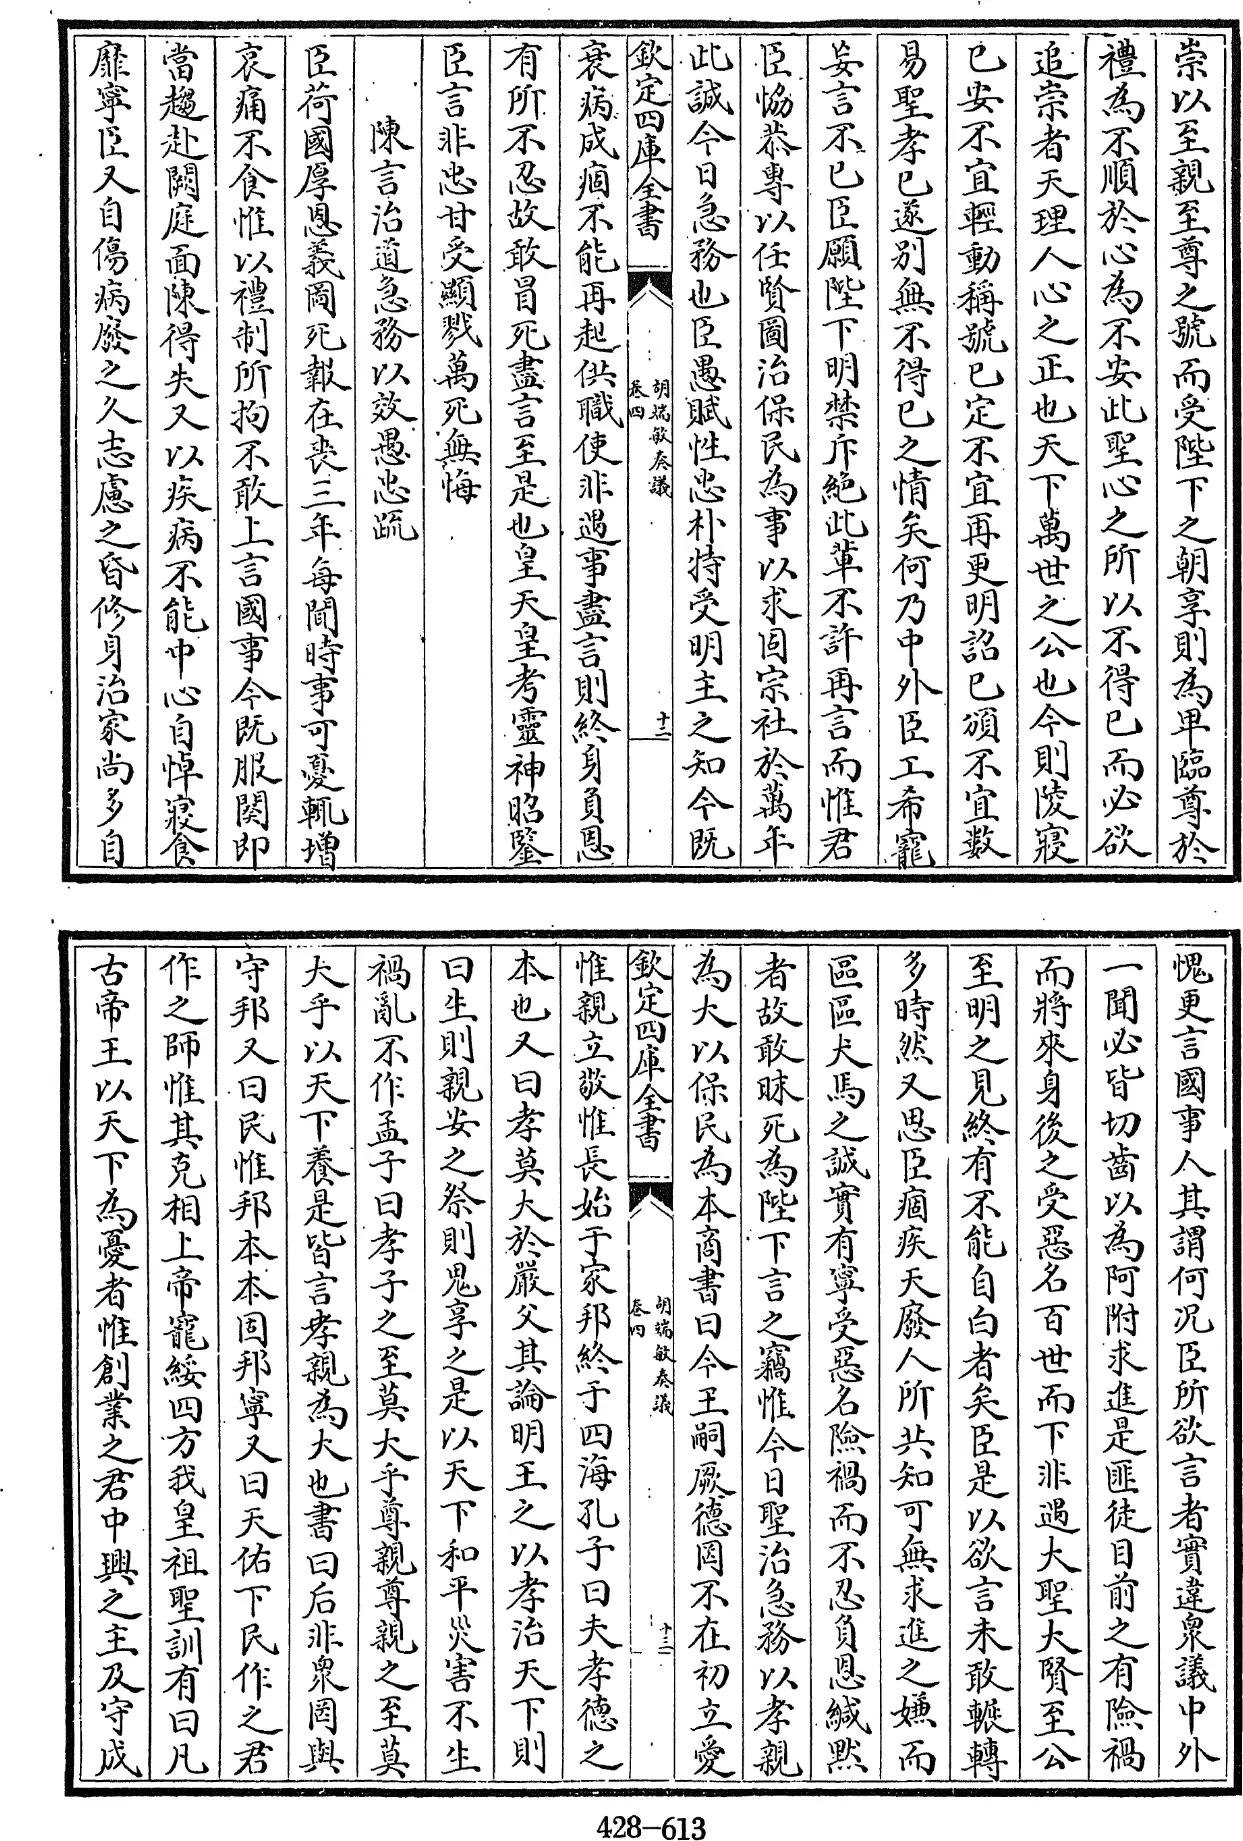 崇以至親至尊之號而受陛下之朝享則為卑臨尊於
禮為不順於心為不安此聖心之所以不得已而必欲
追崇者天理人心之正也天下萬世之公也今則陵寢
已安不宜輕動稱號已定不宜再更明詔已頒不宜數
易聖孝已遂别無不得已之情矣何乃中外臣工希寵
妄言不已臣願陛下明禁斥絶此輩不許再言而惟君
臣恊恭專以任賢圖治保民為事以求固宗社於萬年
此誠今日急務也臣愚賦性忠朴特受明主之知今既
欽定四庫全書
胡端敏奏議
卷四
十二
衰病成痼不能再起供職使非遇事盡言則終身負恩
有所不忍故敢冒死盡言至是也皇天皇考靈神昭鑒
臣言非忠甘受顯戮萬死無悔
陳言治道急務以效愚忠疏
臣荷國厚恩義啚死報在喪三年每聞時事可憂輒增
哀痛不食惟以禮制所拘不敢上言國事今既服闋即
當趨赴闕庭面陳得失又以疾病不能中心自悼寢食
靡寧臣又自傷病廢之久志慮之昏修身治家尚多自
愧更言國事人其謂何况臣所欲言者實違衆議中外
一聞必皆切齒以為阿附求進是匪徒目前之有險禍
而將來身後之受惡名百世而下非遇大聖大賢至公
至明之見終有不能自白者矣臣是以欲言未敢輾轉
多時然又思臣痼疾天廢人所共知可無求進之嫌而
區區犬馬之誠實有寧受惡名險禍而不忍負恩緘黙
者故敢昧死為陛下言之竊惟今日聖治急務以孝親
為大以保民為本商書曰今王嗣厥德罔不在初立愛
欽定四庫全書
胡端敏奏議
卷四
十三
惟親立敬惟長始于家邦終于四海孔子曰夫孝德之
本也又曰孝莫大於嚴父其論明王之以孝治天下則
曰生則親安之祭則鬼享之是以天下和平災害不生
禍亂不作孟子曰孝子之至莫大乎尊親尊親之至莫
大乎以天下養是皆言孝親為大也書曰后非衆罔與
守邦又曰民惟邦本本固邦寧又曰天佑下民作之君
作之師惟其克相上帝寵綏四方我皇祖聖訓有曰凡
古帝王以天下為憂者惟創業之君中興之主及守成
428-613